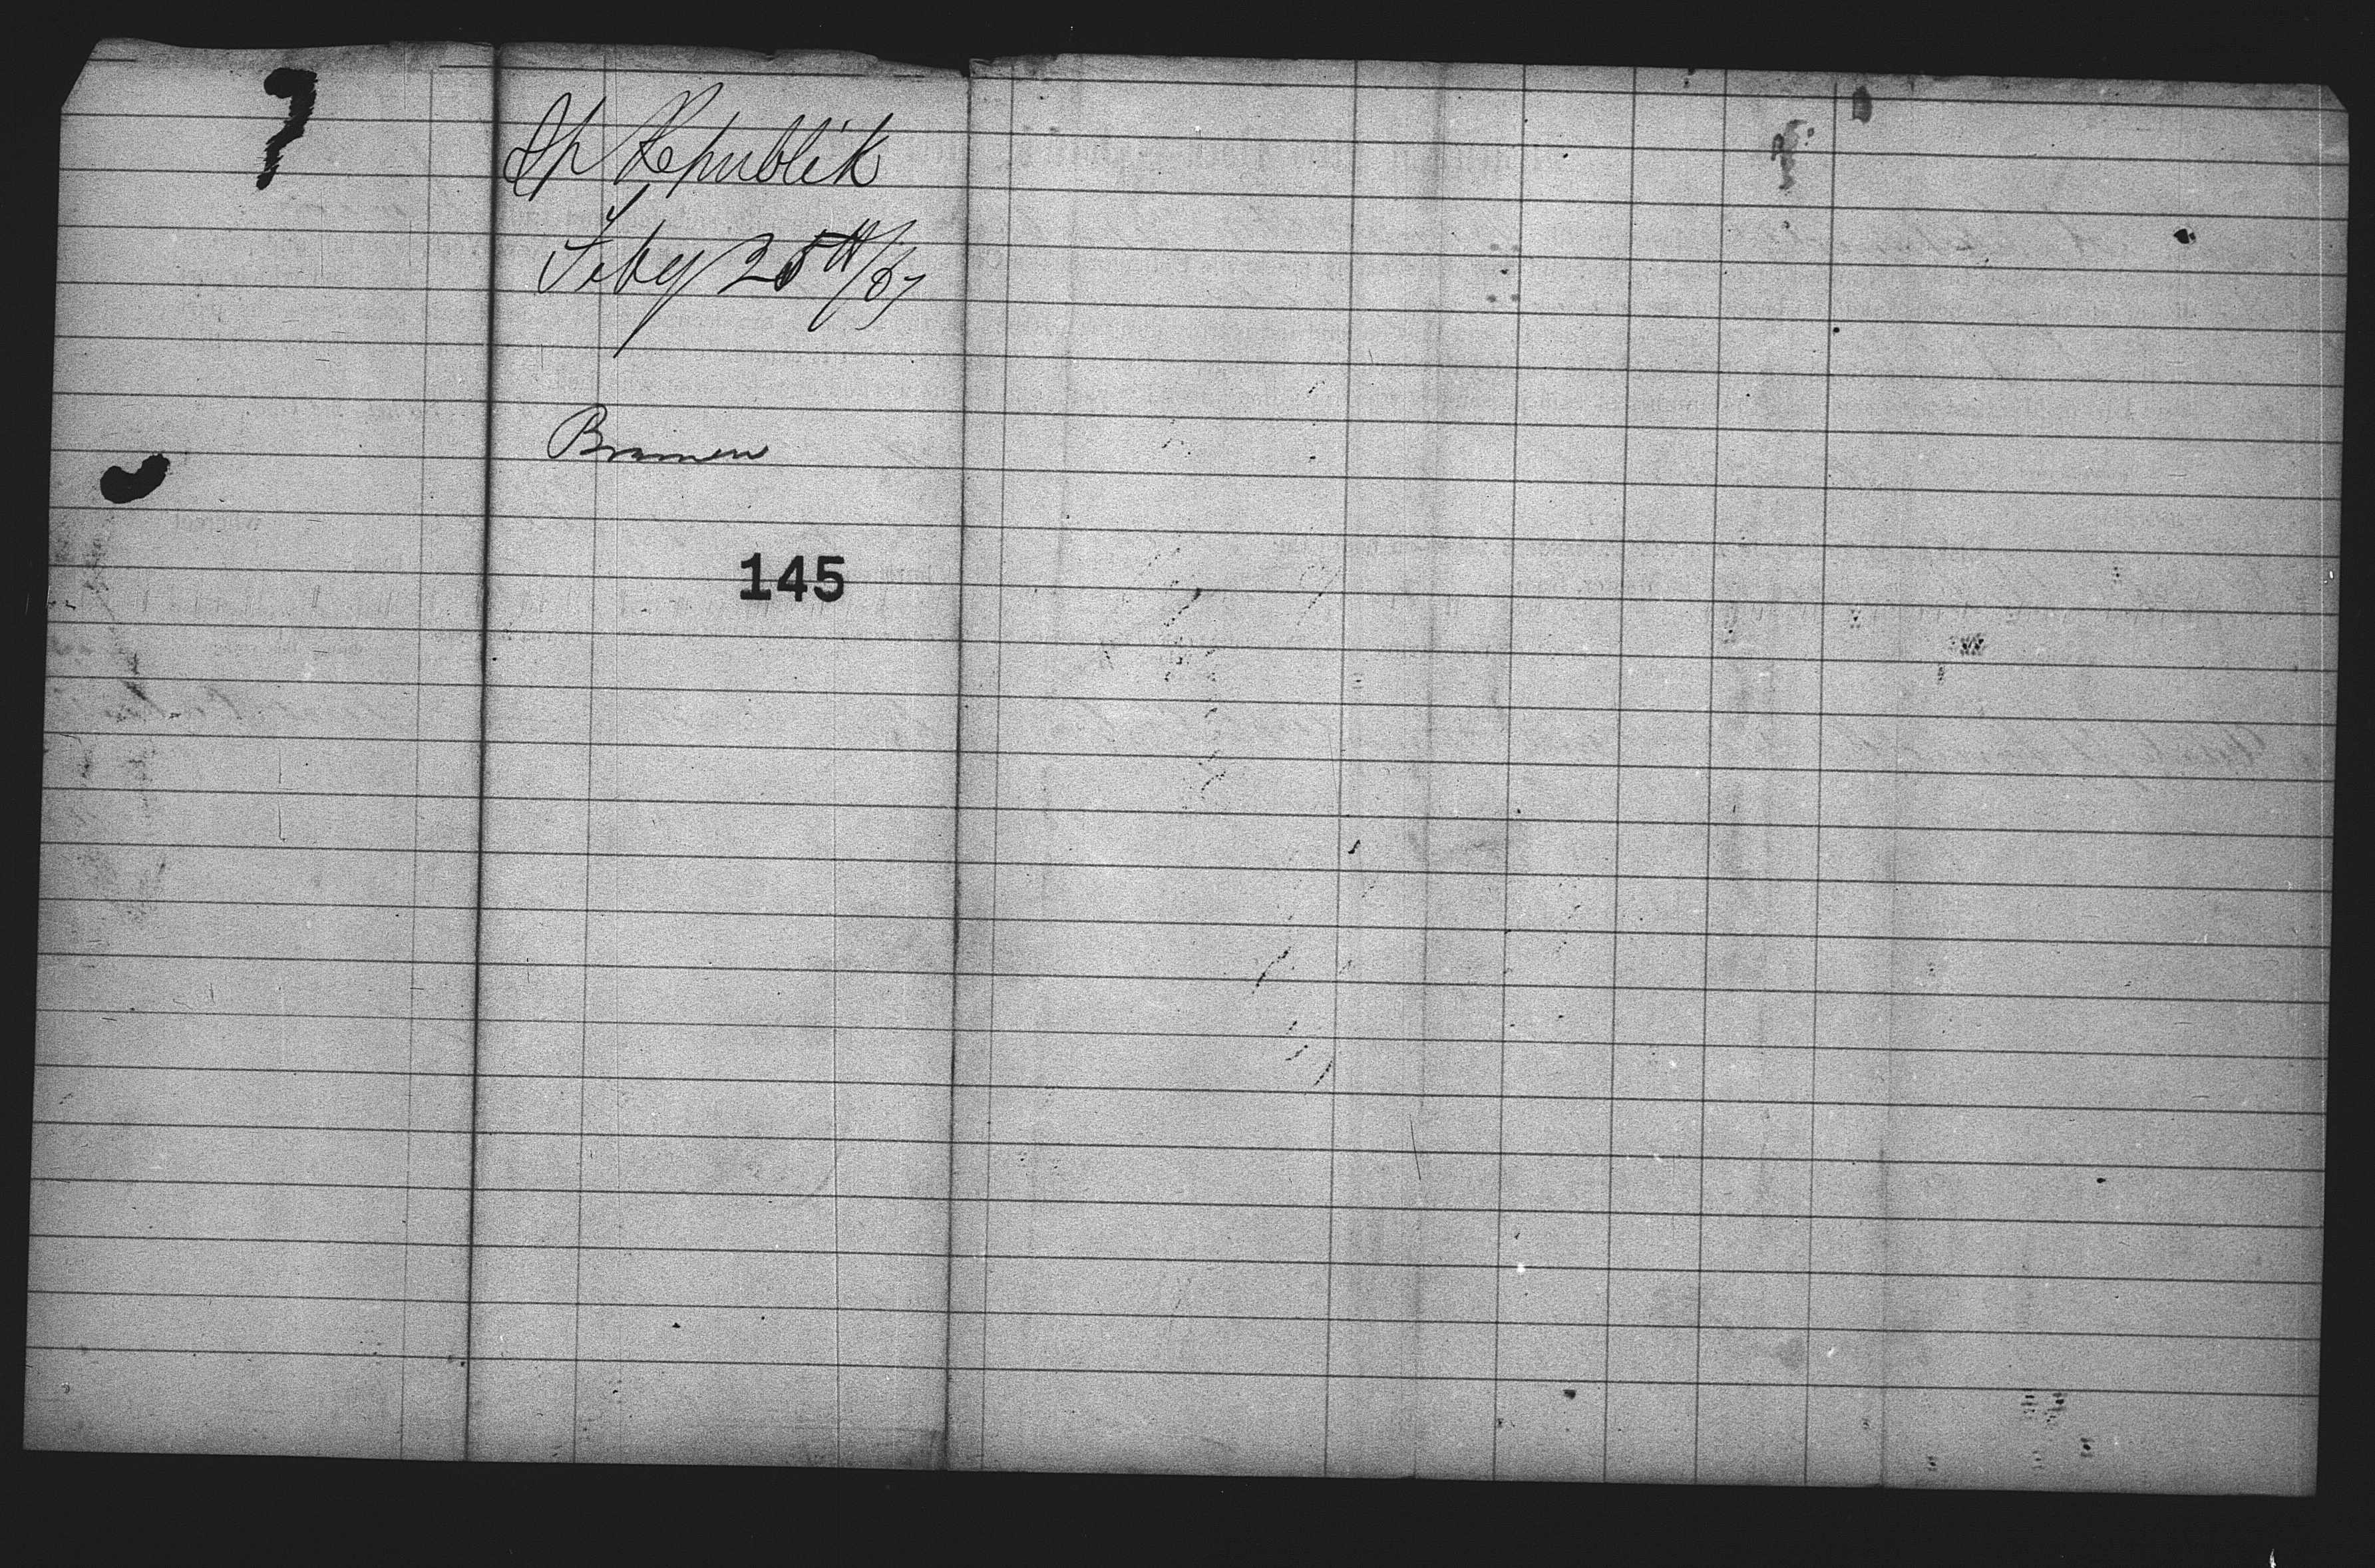 7
Sh Republik
Feby 25th/67
Bremen
145